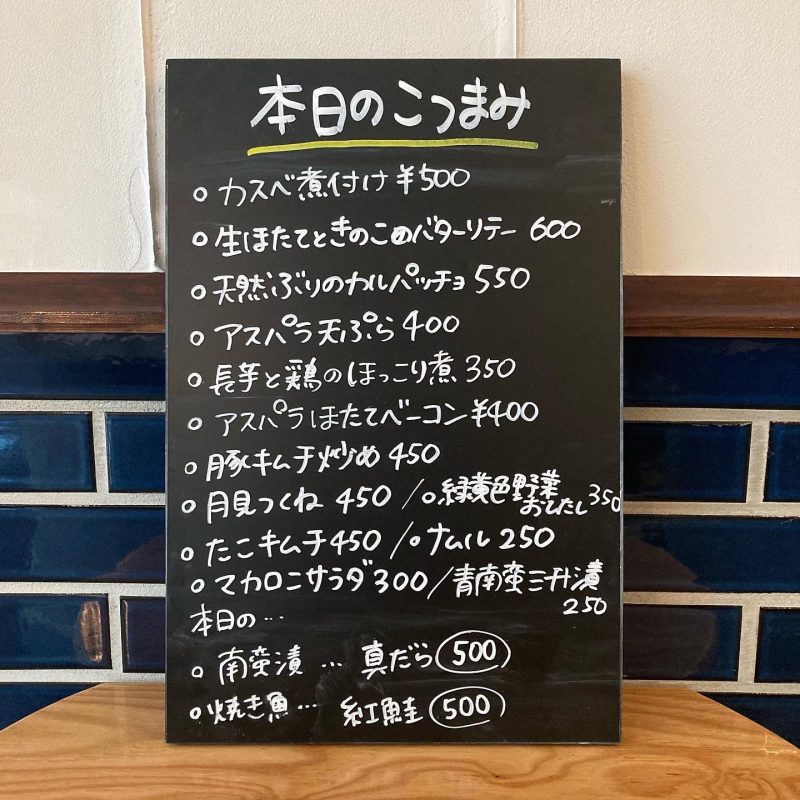 本日のこつまみ
○ カスベ煮付け ¥500
○ 生ほたてときのこのバターソテー 600
○ 天然ぶりのカルパッチョ 550
○ アスパラ天ぷら 400
○ 長芋と鶏のほっこり煮 350
○ アスパラほたてベーコン ¥400
○ 豚キムチ炒め 450
○ 月見つくね 450 / ○ 緑黄色野菜おひたし 350
○ たこキムチ 450 / ○ ナムル 250
○ マカロニサラダ 300 / 青南蛮三升漬 250
本日の…
○ 南蛮漬 … 真だら 500
○ 焼き魚 … 紅鮭 500